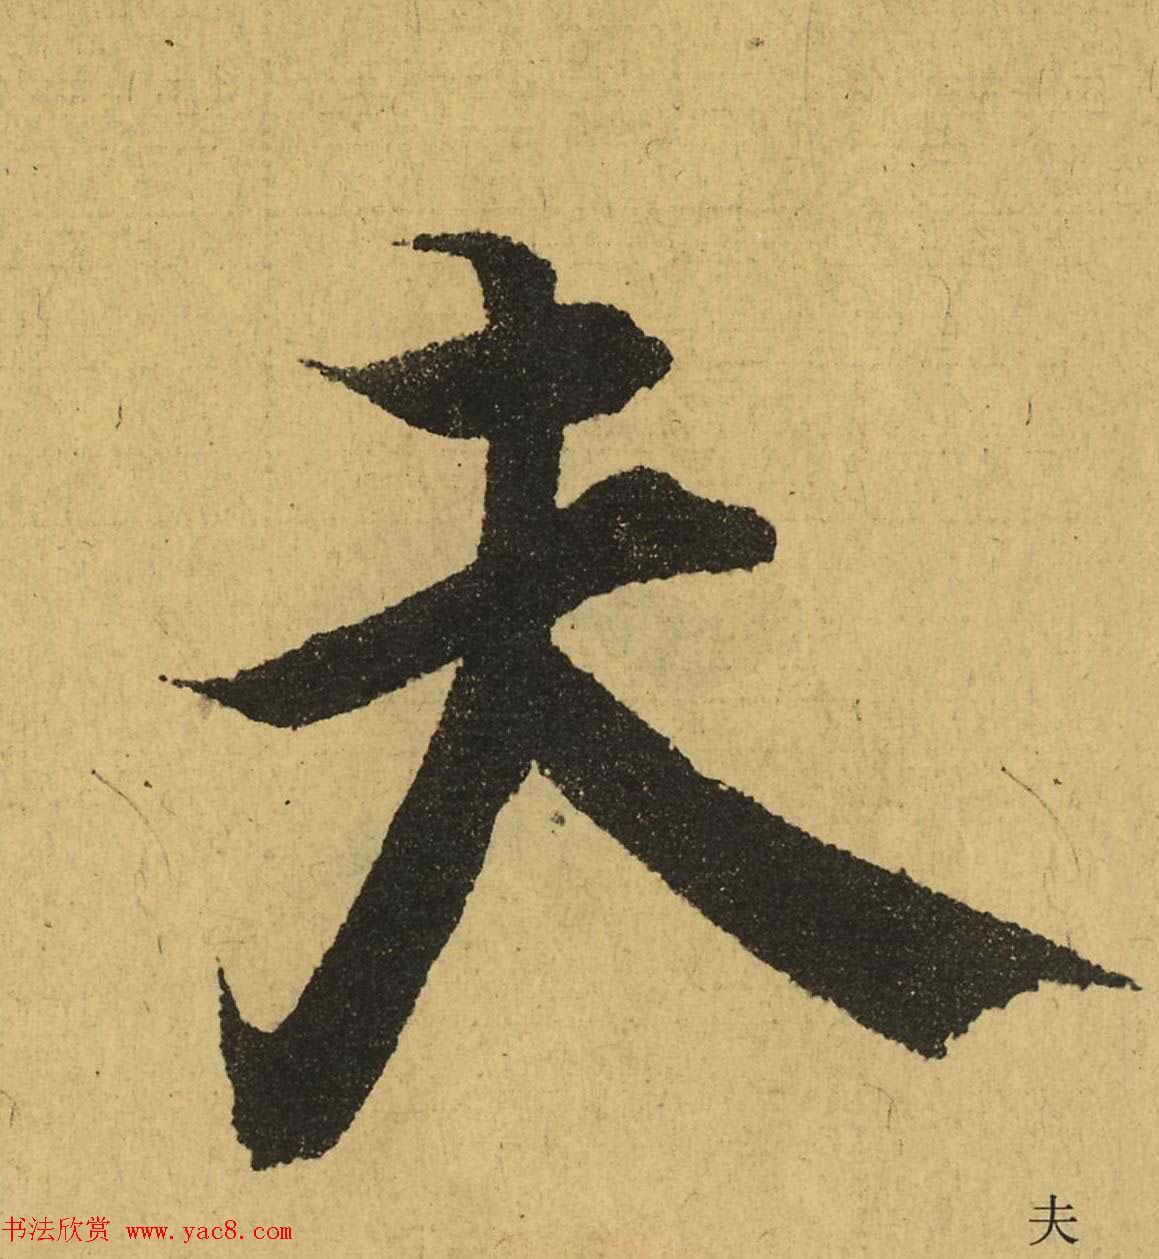 夫
夫
书法欣赏 www.yac8.com